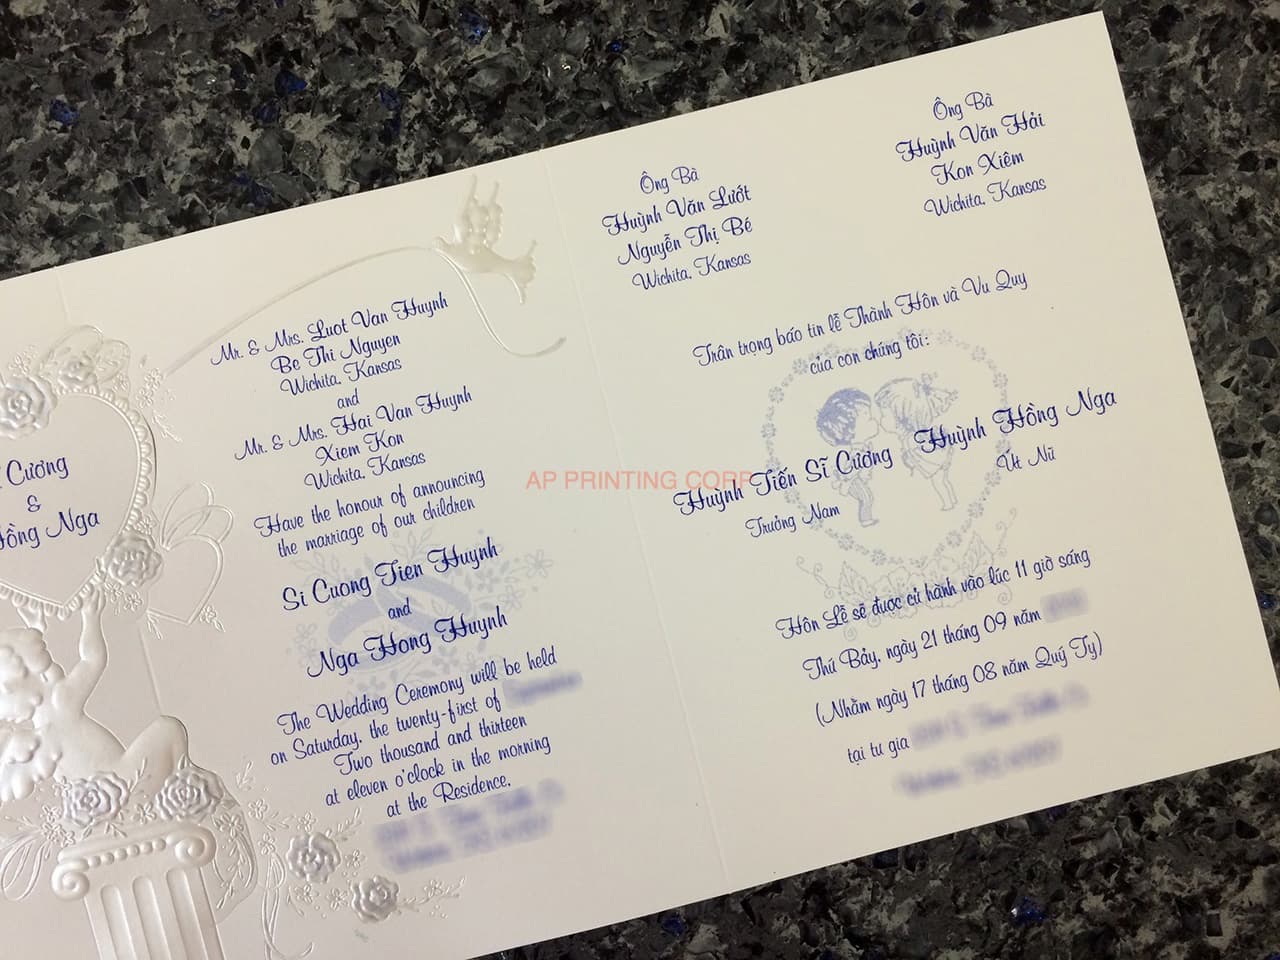 Cương
&
Hồng Nga
Mr. & Mrs. Luot Van Huynh
Be Thi Nguyen
Wichita, Kansas
and
Mr. & Mrs. Hai Van Huynh
Xiem Kon
Wichita, Kansas
Have the honour of announcing
the marriage of our children
Si Cuong Tien Huynh
and
Nga Hong Huynh
The Wedding Ceremony will be held
on Saturday, the twenty-first of
Two thousand and thirteen
at eleven o'clock in the morning
at the Residence.
Ông Bà
Huỳnh Văn Lướt
Nguyễn Thị Bé
Wichita, Kansas
Ông Bà
Huỳnh Văn Hải
Kon Xiêm
Wichita, Kansas
Trân trọng báo tin lễ Thành Hôn và Vu Quy
của con chúng tôi:
Huỳnh Tiến Sĩ Cương
Trưởng Nam
Huỳnh Hồng Nga
Út Nữ
Hôn Lễ sẽ được cử hành vào lúc 11 giờ sáng
Thứ Bảy, ngày 21 tháng 09 năm
(Nhằm ngày 17 tháng 08 năm Quý Tỵ)
tại tư gia
AP PRINTING CORP